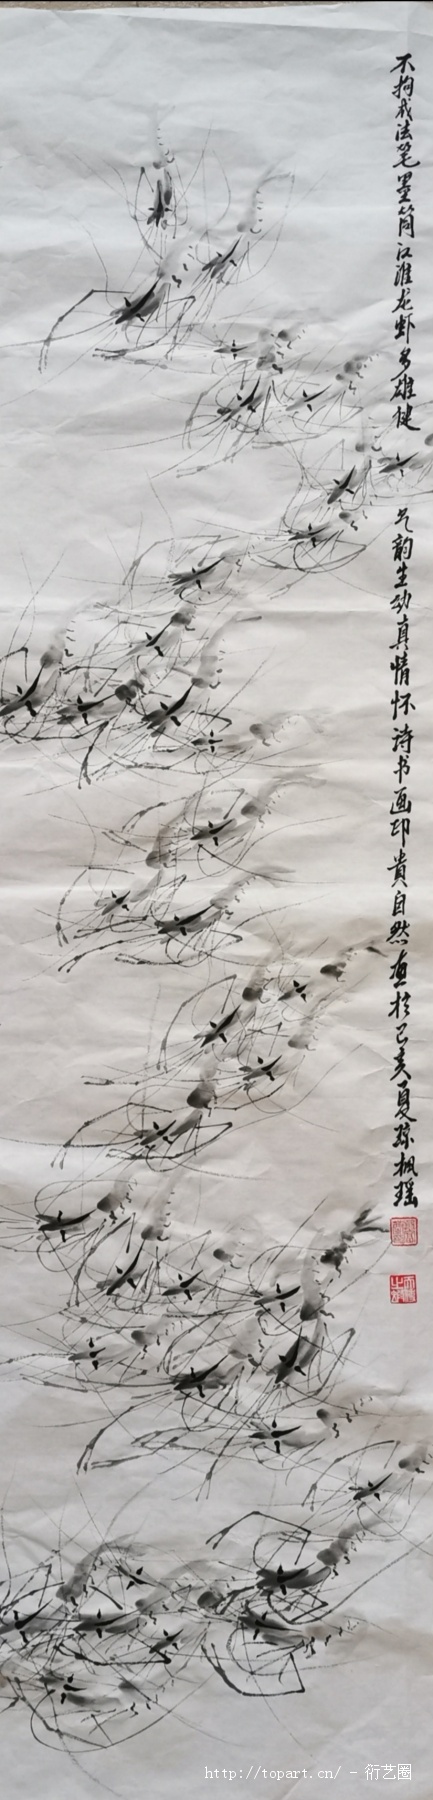 不拘成法笔墨简江淮龙虾多雄健 气韵生动真情怀诗书画印贵自然画于己亥夏孙枫瑶
http://topart.cn/ - 衍艺圈